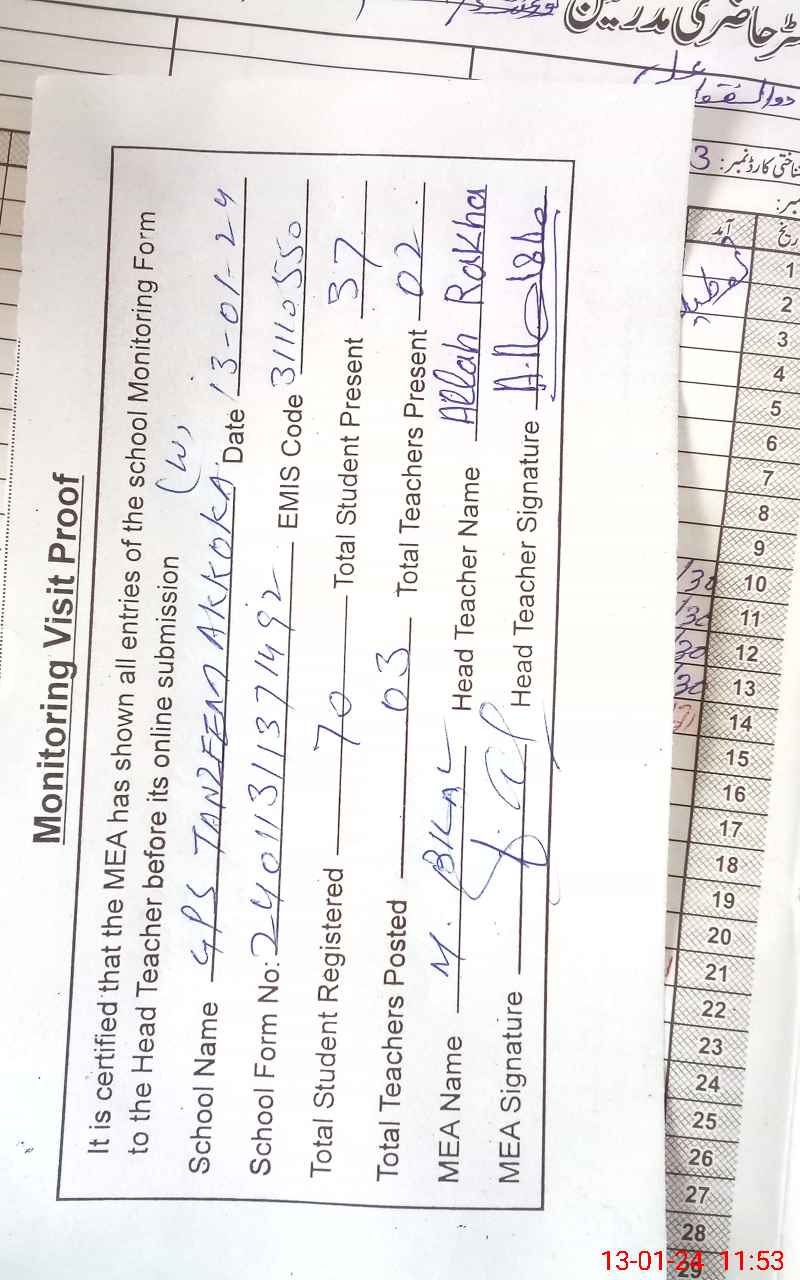 Monitoring Visit Proof
It is certified that the MEA has shown all entries of the school Monitoring Form
to the Head Teacher before its online submission
School Name GPS TANZEEM AKKOKA (W) Date 13-01-24
School Form No: 24011311371492 EMIS Code 31110550
Total Student Registered 70 Total Student Present 37
Total Teachers Posted 03 Total Teachers Present 02
MEA Name M. Head Teacher Name Allah Rakha
MEA Signature Head Teacher Signature
حاضری مدرسین
ذوالفقار علی
شناختی کارڈ نمبر: 3
نمبر:
تاریخ آمد
1
2
3
4
5
6
7
8
9
10
11
12
13
14
15
16
17
18
19
20
21
22
23
24
25
26
27
28
29
13-01-24 11:53